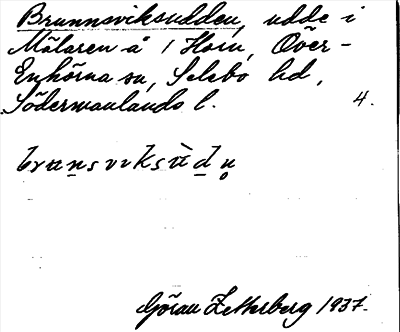 Brunnsviksudden, udde i
Mälaren å 1 Horn, Över-
Enhörna sn, Selebo hd,
Södermanlands l. 4.
brunsviksùdn̥
Göran Zetterberg 1937.